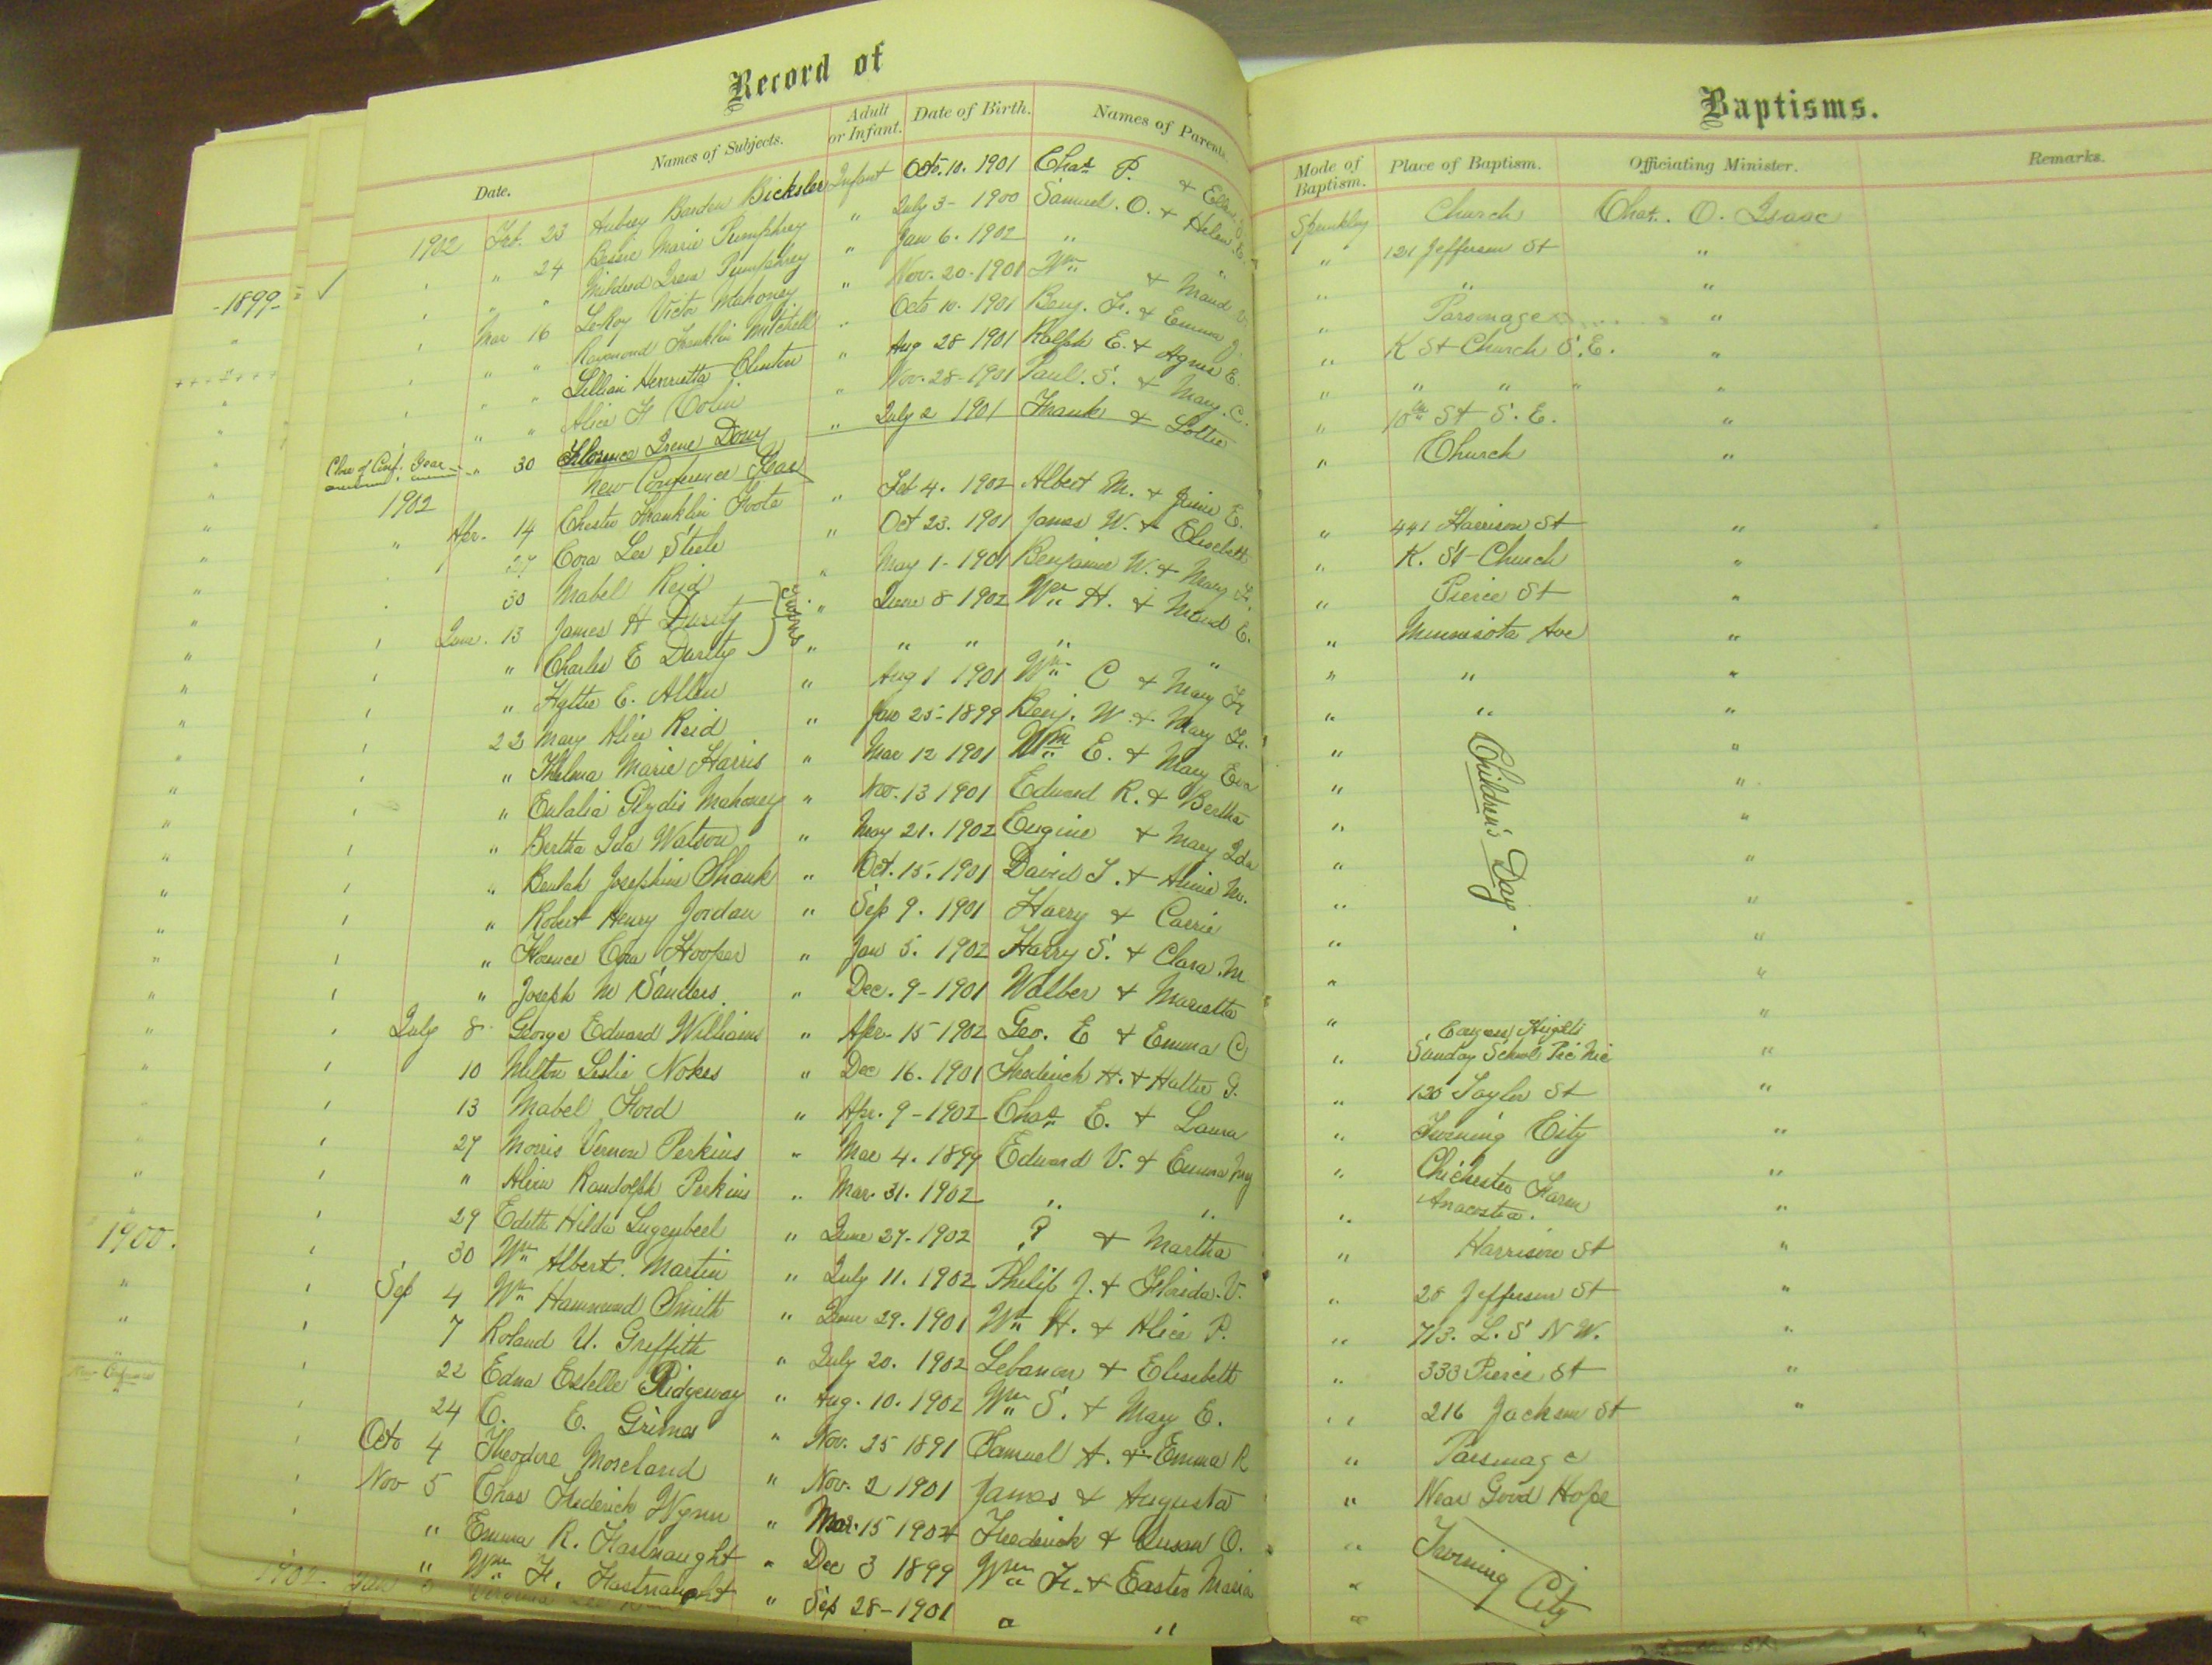 Record of
Date. Names of Subjects. Adult or Infant. Date of Birth. Names of Parents.
1902 Feb. 23 Aubrey Barden Bicksler Infant Oct. 10. 1901 Chas P. &
" 24 Bessie Marie Pumphrey " July 3 - 1900 Samuel. O. & Helen. E.
" " Mildred Irene Pumphrey " Jan 6. 1902 " "
Mar 16 LeRoy Victor Mahoney " Nov. 20. 1901 Wm & Maud V.
" " Raymond Franklin Mitchell " Octo 10. 1901 Benj. Fr. & Emma J.
" " Lillian Henrietta Clinton " Aug 28 1901 Ralph E. & Agnes E.
" " Alice F " Nov. 28 - 1901 Paul. S. & Mary. C.
Close of Conf. Year " 30 Florence Irene Dony " July 2 1901 Frank & Lottie
New Conference Year
1902
" Apr. 14 Chester Franklin Foote " Feb 4. 1902 Albert M. & E.
27 Cora Lee Steele " Oct 23. 1901 James W. & Elisebeth
30 Mabel Reid " May 1 - 1901 Benjamin W. & Mary Fr.
June. 13 James H Durity } Twins " June 8 1902 Wm H. & Maud E.
" Charles E Durity " " " " "
" Hattie E. Allen " Aug 1 1901 Wm C & Mary Fr
22 Mary Alice Reid " Jan 25 - 1899 Benj. W. & Mary Fr.
" Thelma Marie Harris " Mar 12 1901 Wm E. & Mary Eva
" Eulalia Glydis Mahoney " Nov. 13 1901 Edward R. & Bertha
" Bertha Ida Watson " May 21. 1902 Eugine & Mary Ida
" Beulah Josephine Shank " Oct. 15. 1901 David T. & Annie M.
" Robert Henry Jordan " Sep 9. 1901 Harry & Carrie
" Florence Cora Hooper " Jan 5. 1902 Harry S. & Clara. M
" Joseph M Sanders. " Dec. 9 - 1901 Walber & Marietta
July 8 George Edward Williams " Apr. 15 1902 Geo. E & Emma C
10 Milton Leslie Nokes " Dec 16. 1901 Frederick H. & Hattie G.
13 Mabel Ford " Apr. 9 - 1902 Chas E. & Laura
27 Morris Vernon Perkins " Mar 4. 1899 Edward V. & Emma May
" Alvin Randolph Perkins " Mar. 31. 1902 " "
29 Edith Hilda Lugenbeel " June 27 - 1902 ? & Martha
30 Wm Albert. Martin " July 11. 1902 Philip J. & Florida. V.
Sep 4 Wm Hammond Smith " June 29. 1901 Wm H. & Alice P.
7 Roland U. Griffith " July 20. 1902 Lebanon & Elisebeth
22 Edna Estelle Ridgeway " Aug. 10. 1902 Wm S. & Mary E.
24 C. E. Grimes " Nov. 25 1891 Samuel A. & Emma R
Octo 4 Theodore Moreland " Nov. 2 1901 James & Augusta
Nov 5 Chas Frederick Wynn " Mar. 15 1902 Frederick & Susan O.
" Emma R. Hastnaught " Dec 3 1899 Wm Fr. & Easter Maria
" Wm H. Hastnaught " Sep 28 - 1901 " "
1902. Jan
- 1899 -
1900.
Baptisms.
Mode of Baptism. Place of Baptism. Officiating Minister. Remarks.
Sprinkling Church Chas. O. Isaac
" 121 Jefferson St "
" " "
" Parsonage "
" K St Church S. E. "
" " " " "
" 10th St S. E. "
" Church "
" 441 Harrison St "
" K. St Church "
" Pierce St "
" Minnesota Ave "
" " "
" " "
Children's Day.
" Sunday School Pic Nic "
" 120 Taylor St "
" Twining City "
" Chichester Farm "
" Anacostia. "
" Harrison St "
" 28 Jefferson St "
" 713. L. S N W. "
" 333 Pierce St "
" 216 Jackson St "
" Parsonage
" Near Good Hope
" Twining City